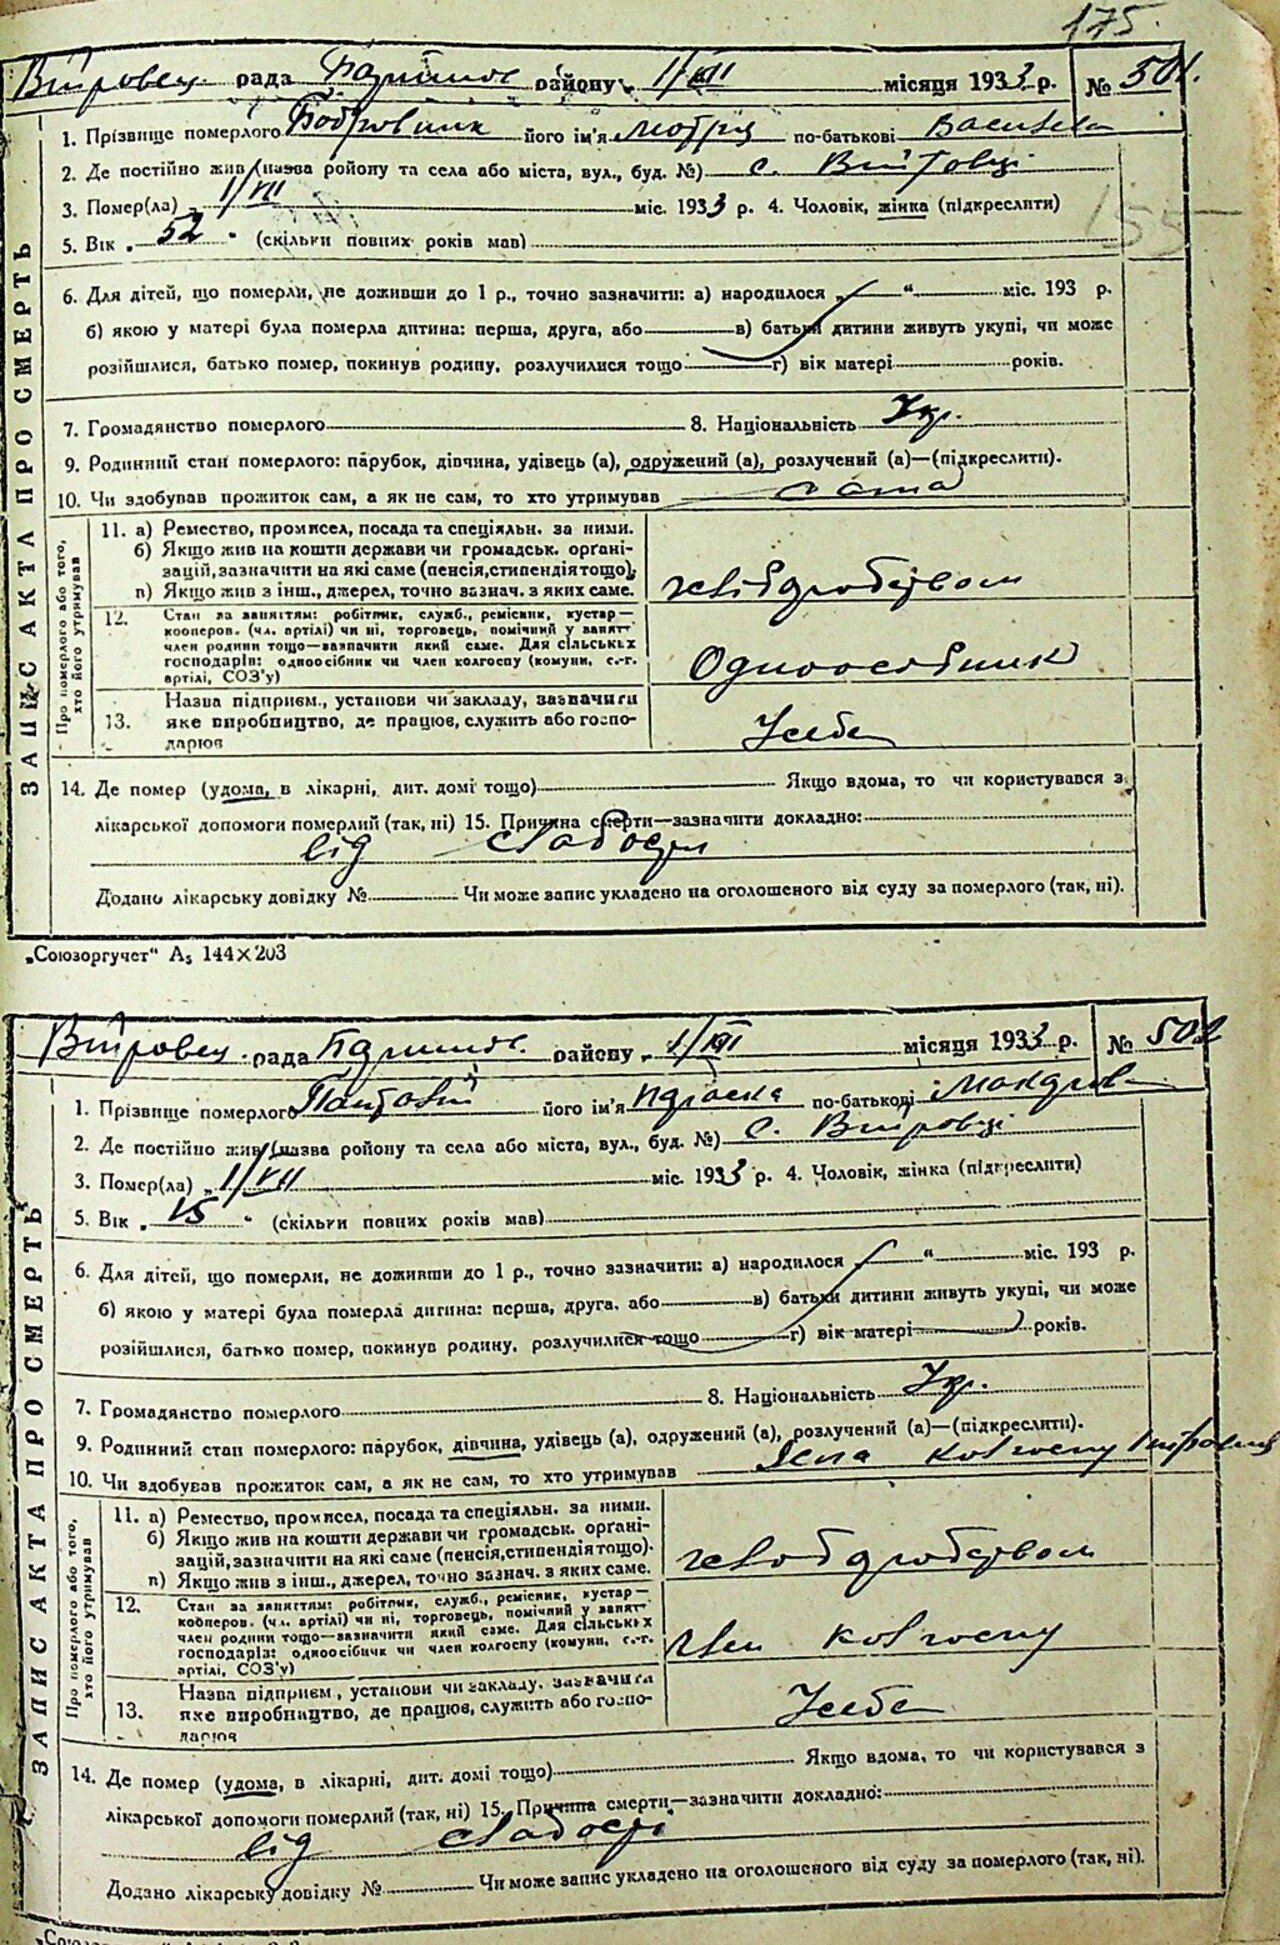 175.
рада району 1/VII місяця 1933 р. № 501.
1. Прізвище померлого Бобровник його ім'я Мотря по-батькові Василева
2. Де постійно жив (назва ройону та села або міста, вул., буд. №) с. Війтовці
3. Помер(ла) „ 1/VII міс. 1933 р. 4. Чоловік, жінка (підкреслити)
5. Вік „ 52 " (скільки повних років мав)
155
6. Для дітей, що померли, не доживши до 1 р., точно зазначити: а) народилося „ " міс. 193 р.
б) якою у матері була померла дитина: перша, друга, або в) батьки дитини живуть укупі, чи може
розійшлися, батько помер, покинув родину, розлучилися тощо г) вік матері років.
7. Громадянство померлого 8. Національність Укр.
9. Родинний стан померлого: парубок, дівчина, удівець (а), одружений (а), розлучений (а)—(підкреслити).
10. Чи здобував прожиток сам, а як не сам, то хто утримував сама
11. а) Ремество, промисел, посада та спеціяльн. за ними.
б) Якщо жив на кошти держави чи громадськ. орґані-
зацій, зазначити на які саме (пенсія, стипендія тощо);
п) Якщо жив з інш., джерел, точно зазнач. з яких саме.
хлібодробством
12. Стан за заняттям: робітник, служб., ремісник, кустар—
кооперов. (чл. артілі) чи ні, торговець, помічний у занят—
член родини тощо—зазначити який саме. Для сільських
господарів: одноосібник чи член колгоспу (комуни, с.-г.
артілі, СОЗ'у)
Одноосібник
13. Назва підприєм., установи чи закладу, зазначити
яке виробництво, де працює, служить або госпо-
дарюв
У себе
Про померлого або того, хто його утримував
ЗАПИС АКТА ПРО СМЕРТЬ
14. Де помер (удома, в лікарні, дит. домі тощо) Якщо вдома, то чи користувався з
лікарської допомоги померлий (так, ні) 15. Причина смерти—зазначити докладно:
від слабости
Додано лікарську довідку № Чи може запис укладено на оголошеного від суду за померлого (так, ні).
„Союзоргучет“ А5 144×203
рада району „ 1/VII місяця 1933 р. № 502
1. Прізвище померлого його ім'я по-батькові
2. Де постійно жив (назва ройону та села або міста, вул., буд. №) с. Війтовці
3. Помер(ла) „ 1/VII міс. 1933 р. 4. Чоловік, жінка (підкреслити)
5. Вік „ 15 " (скільки повних років мав)
6. Для дітей, що померли, не доживши до 1 р., точно зазначити: а) народилося „ " міс. 193 р.
б) якою у матері була померла дитина: перша, друга, або в) батьки дитини живуть укупі, чи може
розійшлися, батько помер, покинув родину, розлучилися тощо г) вік матері років.
7. Громадянство померлого 8. Національність Укр.
9. Родинний стан померлого: парубок, дівчина, удівець (а), одружений (а), розлучений (а)—(підкреслити).
10. Чи здобував прожиток сам, а як не сам, то хто утримував колгоспу
11. а) Ремество, промисел, посада та спеціяльн. за ними.
б) Якщо жив на кошти держави чи громадськ. орґані-
зацій, зазначити на які саме (пенсія, стипендія тощо).
п) Якщо жив з інш., джерел, точно зазнач. з яких саме.
хлібодробством
12. Стан за заняттям: робітник, служб., ремісник, кустар—
кооперов. (чл. артілі) чи ні, торговець, помічний у занят—
член родини тощо—зазначити який саме. Для сільських
господарів: одноосібник чи член колгоспу (комуни, с.-г.
артілі, СОЗ'у)
Член колгоспу
13. Назва підприєм., установи чи закладу, зазначити
яке виробництво, де працює, служить або госпо-
дарюв
У себе
Про померлого або того, хто його утримував
ЗАПИС АКТА ПРО СМЕРТЬ
14. Де помер (удома, в лікарні, дит. домі тощо) Якщо вдома, то чи користувався з
лікарської допомоги померлий (так, ні) 15. Причина смерти—зазначити докладно:
від слабости
Додано лікарську довідку № Чи може запис укладено на оголошеного від суду за померлого (так, ні).